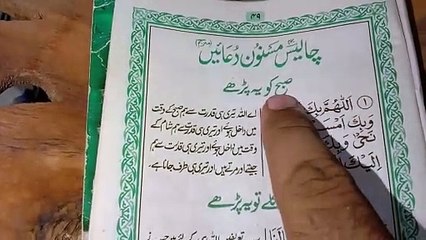 ۳۹
چالیس مسنون دعائیں
صبح کو یہ پڑھے
① اَللّٰهُمَّ بِكَ
وَبِكَ اَمْسَ
نَحْيٰى وَبِكَ
اِلَيْكَ الْ
اے اللہ تیری ہی قدرت سے ہم صبح کے وقت
میں داخل ہوئے اور تیری ہی قدرت سے ہم شام کے
وقت میں داخل ہوئے اور تیری ہی قدرت سے ہم
جیتے اور مرتے ہیں اور تیری ہی طرف جانا ہے۔
لے تو یہ پڑھے